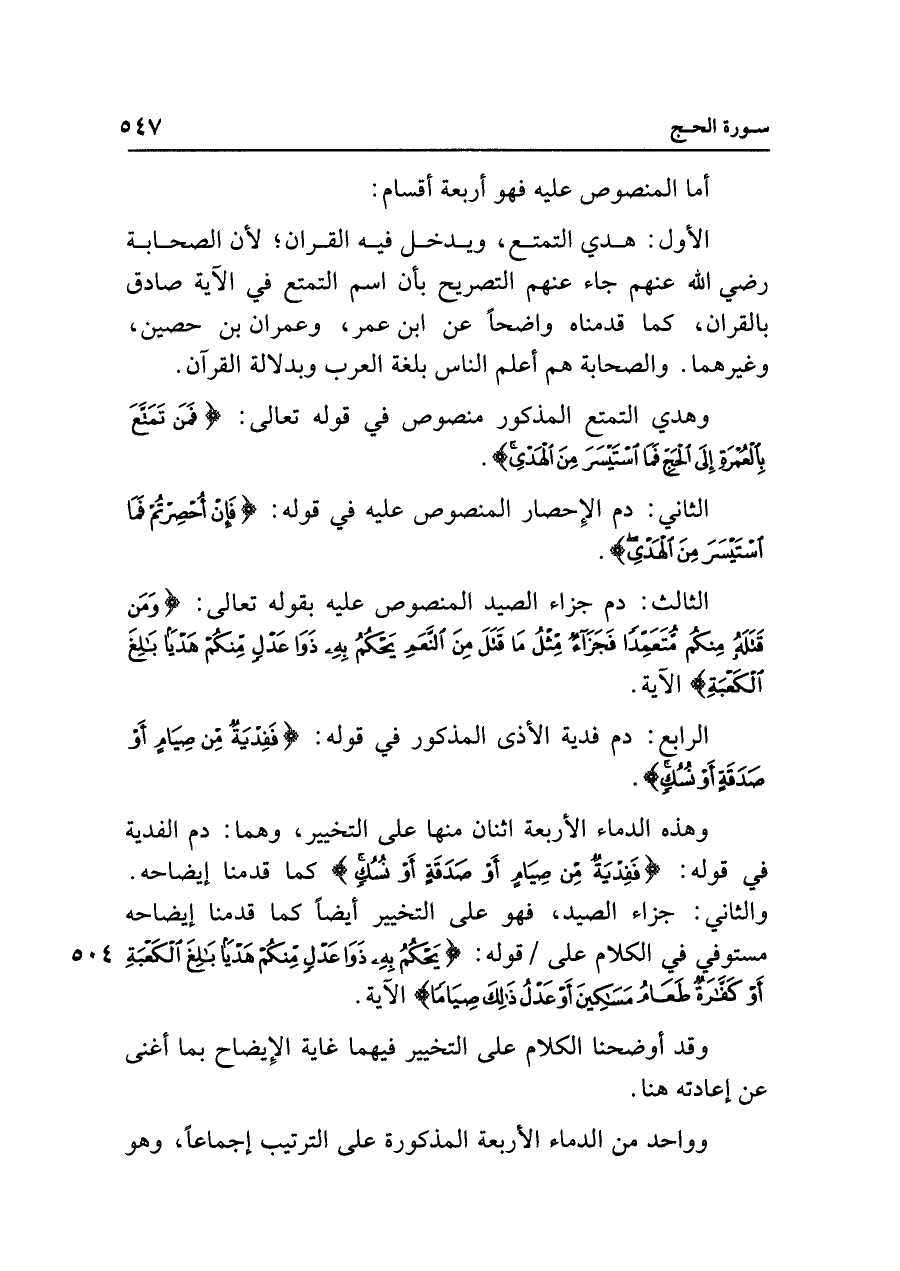 سورة الحج ٥٤٧
أما المنصوص عليه فهو أربعة أقسام:
الأول: هدي التمتع، ويدخل فيه القران؛ لأن الصحابة
رضي الله عنهم جاء عنهم التصريح بأن اسم التمتع في الآية صادق
بالقران، كما قدمناه واضحاً عن ابن عمر، وعمران بن حصين،
وغيرهما. والصحابة هم أعلم الناس بلغة العرب وبدلالة القرآن.
وهدي التمتع المذكور منصوص في قوله تعالى: ﴿ فَمَن تَمَتَّعَ
بِٱلْعُمْرَةِ إِلَى ٱلْحَجِّ فَمَا ٱسْتَيْسَرَ مِنَ ٱلْهَدْيِۚ ﴾.
الثاني: دم الإحصار المنصوص عليه في قوله: ﴿ فَإِنْ أُحْصِرْتُمْ فَمَا
ٱسْتَيْسَرَ مِنَ ٱلْهَدْيِۖ ﴾.
الثالث: دم جزاء الصيد المنصوص عليه بقوله تعالى: ﴿ وَمَن
قَتَلَهُۥ مِنكُم مُّتَعَمِّدًا فَجَزَآءٌ مِّثْلُ مَا قَتَلَ مِنَ ٱلنَّعَمِ يَحْكُمُ بِهِۦ ذَوَا عَدْلٍ مِّنكُمْ هَدْيًۢا بَٰلِغَ
ٱلْكَعْبَةِ ﴾ الآية.
الرابع: دم فدية الأذى المذكور في قوله: ﴿ فَفِدْيَةٌ مِّن صِيَامٍ أَوْ
صَدَقَةٍ أَوْ نُسُكٍۚ ﴾.
وهذه الدماء الأربعة اثنان منها على التخيير، وهما: دم الفدية
في قوله: ﴿ فَفِدْيَةٌ مِّن صِيَامٍ أَوْ صَدَقَةٍ أَوْ نُسُكٍۚ ﴾ كما قدمنا إيضاحه.
والثاني: جزاء الصيد، فهو على التخيير أيضاً كما قدمنا إيضاحه
مستوفي في الكلام على / قوله: ﴿ يَحْكُمُ بِهِۦ ذَوَا عَدْلٍ مِّنكُمْ هَدْيًۢا بَٰلِغَ ٱلْكَعْبَةِ ٥٠٤
أَوْ كَفَّٰرَةٌ طَعَامُ مَسَٰكِينَ أَوْ عَدْلُ ذَٰلِكَ صِيَامًا ﴾ الآية.
وقد أوضحنا الكلام على التخيير فيهما غاية الإيضاح بما أغنى
عن إعادته هنا.
وواحد من الدماء الأربعة المذكورة على الترتيب إجماعاً، وهو